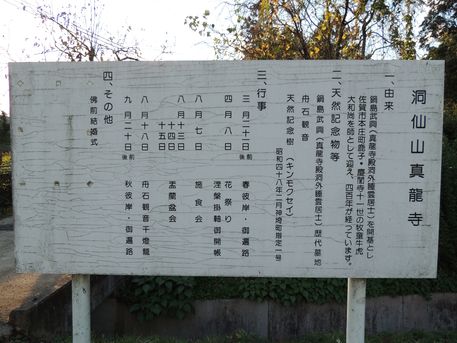 洞仙山真龍寺
一、由来
鍋島武興(真龍寺殿洞外腫雲居士)を開基とし
佐賀市本庄町鹿子・慶誾寺十一世の牧童牛虎
大和尚を師として迎え、四百年が経っています。
二、天然記念物等
鍋島武興(真龍寺殿洞外腫雲居士)歴代墓地
舟石観音
天然記念樹(キンモクセイ)
昭和四十八年二月神埼町指定一号
三、行事
三月二十一日前後 春彼岸・御遍路
四月八日 花祭り
涅槃掛軸御開帳
八月七日 施食会
八月十三 十四 十五日 盂蘭盆会
八月十八日 舟石観音千燈籠
九月二十日前後 秋彼岸・御遍路
四、その他
佛前結婚式